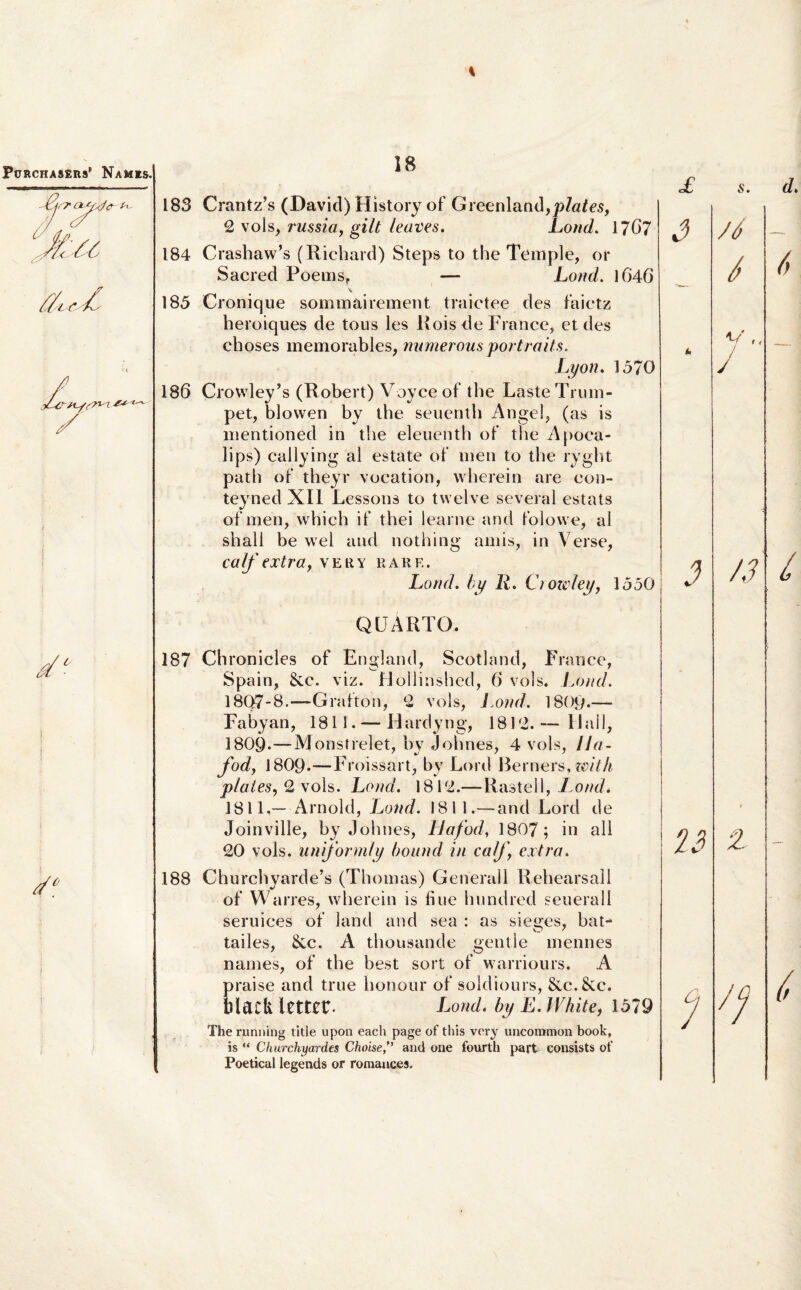 18
Purchasers' Names.
£ s. d.
183 Crantz's (David) History of Greenland, plates,
2 vols, russia, gilt leaves. Lond. 1767
3 16 —
184 Crashaw's (Richard) Steps to the Temple, or
Sacred Poems, — Lond. 1646
6 6
185 Cronique sommairement traictee des faictz
heroiques de tous les Rois de France, et des
choses memorables, numerous portraits.
Lyon. 1570
186 Crowley's (Robert) Voyce of the Laste Trum-
pet, blowen by the seuenth Angel, (as is
mentioned in the eleuenth of the Apoca-
lips) callying al estate of men to the ryght
path of theyr vocation, wherein are con-
teyned XII Lessons to twelve several estats
of men, which if thei learne and folowe, al
shall be wel and nothing amis, in Verse,
calf extra, VERY RARE.
Lond. by R. Crowley, 1550
3 13 6
QUARTO.
do.
187 Chronicles of England, Scotland, France,
Spain, &c. viz. Hollinshed, 6 vols. Lond.
1807-8.—Grafton, 2 vols, Lond. 1809.—
Fabyan, 1811.—Hardyng, 1812.—Hall,
1809.—Monstrelet, by Johnes, 4 vols, Ha-
fod, 1809.—Froissart, by Lord Berners, with
plates, 2 vols. Lond. 1812.—Rastell, Lond.
1811.—Arnold, Lond. 1811.—and Lord de
Joinville, by Johnes, Hafod, 1807; in all
20 vols. uniformly bound in calf, extra.
23 2 -
do.
188 Churchyarde's (Thomas) Generall Rehearsall
of Warres, wherein is fiue hundred seuerall
seruices of land and sea: as sieges, bat-
tailes, &c. A thousande gentle mennes
names, of the best sort of warriours. A
praise and true honour of soldiours, &c. &c.
black letter. Lond. by E. White, 1579
9 19 6
The running title upon each page of this very uncommon book,
is “ Churchyardes Choise,” and one fourth part consists of
Poetical legends or romances.